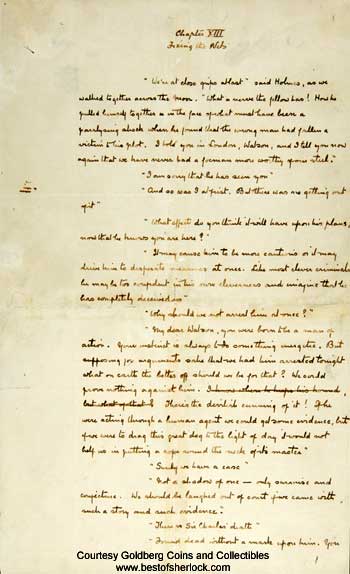 Chapter XIII
Fixing the Nets
"We're at close grips at last" said Holmes, as we
walked together across the moor. "What a nerve the fellow has! How he
pulled himself together in the face of what must have been a
paralysing shock when he found that the wrong man had fallen a
victim to his plot. I told you in London, Watson, and I tell you now
again that we have never had a foeman more worthy of our steel."
"I am sorry that he has seen you"
"And so was I at first. But there was no getting out
of it"
"What effect do you think it will have upon his plans,
now that he knows you are here?"
"It may cause him to be more cautious or it may
drive him to desperate measures at once. Like most clever criminals
he may be too confident in his own cleverness and imagine that he
has completely deceived us"
"Why should we not arrest him at once?"
"My dear Watson, you were born to be a man of
action. Your instinct is always to do something energetic. But
supposing for argument's sake that we had him arrested tonight
what on earth the better off should we be for that? We could
prove nothing against him. I know where he keeps his hound,
but what of that? There's the devilish cunning of it! If he
were acting through a human agent we could get some evidence, but
if we were to drag this great dog to the light of day it would not
help us in putting a rope round the neck of its master"
"Surely we have a case"
"Not a shadow of one — only surmise and
conjecture. We should be laughed out of court if we came with
such a story and such evidence."
"There is Sir Charles' death"
"Found dead without a mark upon him. You
Courtesy Goldberg Coins and Collectibles
www.bestofsherlock.com